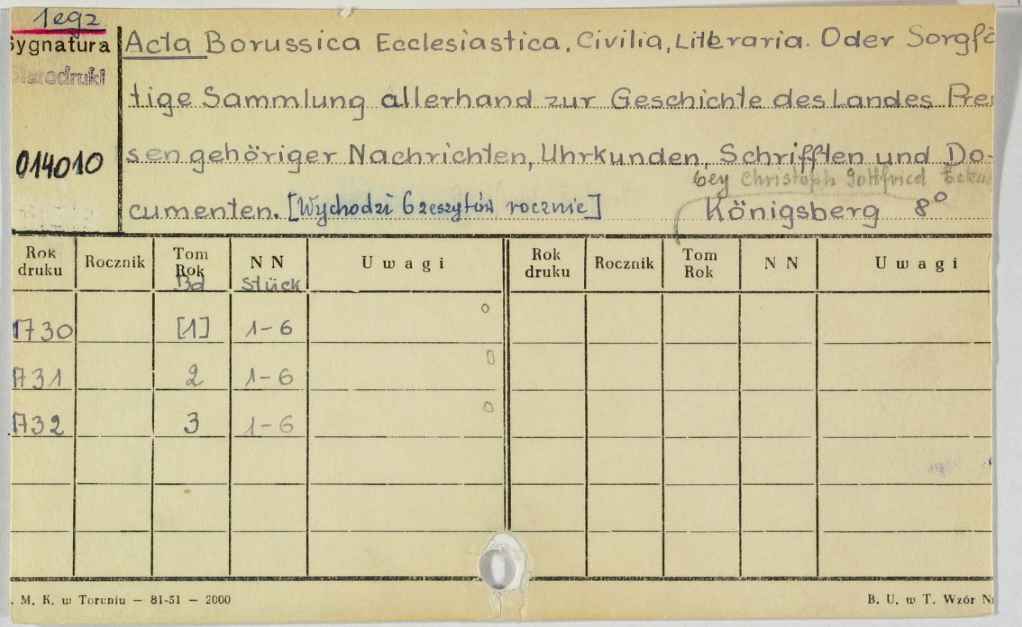 1 egz
Sygnatura
Starodruki
014010
Acta Borussica Ecclesiastica, Civilia, Literaria. Oder Sorgfä
tige Sammlung allerhand zur Geschichte des Landes Preu
sen gehöriger Nachrichten, Uhrkunden, Schrifften und Do-
bey Christoph Gottfried
cumenten. [Wychodzi 6 zeszytów rocznie] Königsberg 8°
Rok druku Rocznik Tom Rok Bd NN Stück Uwagi Rok druku Rocznik Tom Rok NN Uwagi
1730 [1] 1-6 0
1731 2 1-6 0
1732 3 1-6 0
. M. K. w Toruniu — 81-51 — 2000 B. U. w T. Wzór N